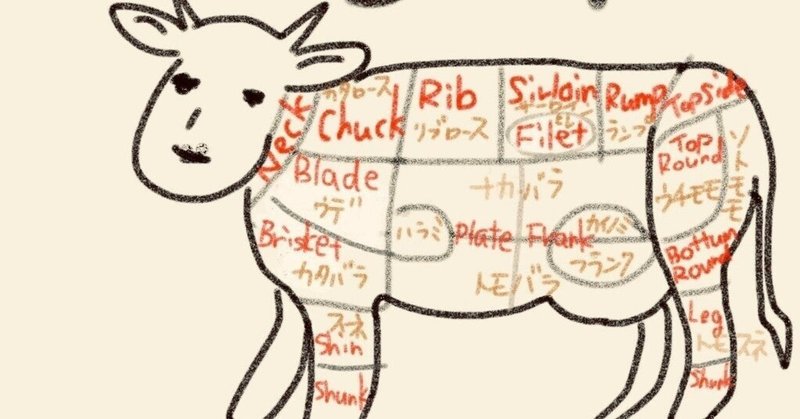 Neck
カタロース
Chuck
Rib
リブロース
Sirloin
サーロイン
ヒレ
Filet
Rump
ランプ
Topside
Top
Round
ウチモモ
ソトモモ
Blade
ウデ
ナカバラ
Brisket
カタバラ
ハラミ
Plate
Flank
カイノミ
フランク
トモバラ
Bottum
Round
スネ
Shin
Shunk
Leg
トモスネ
Shunk